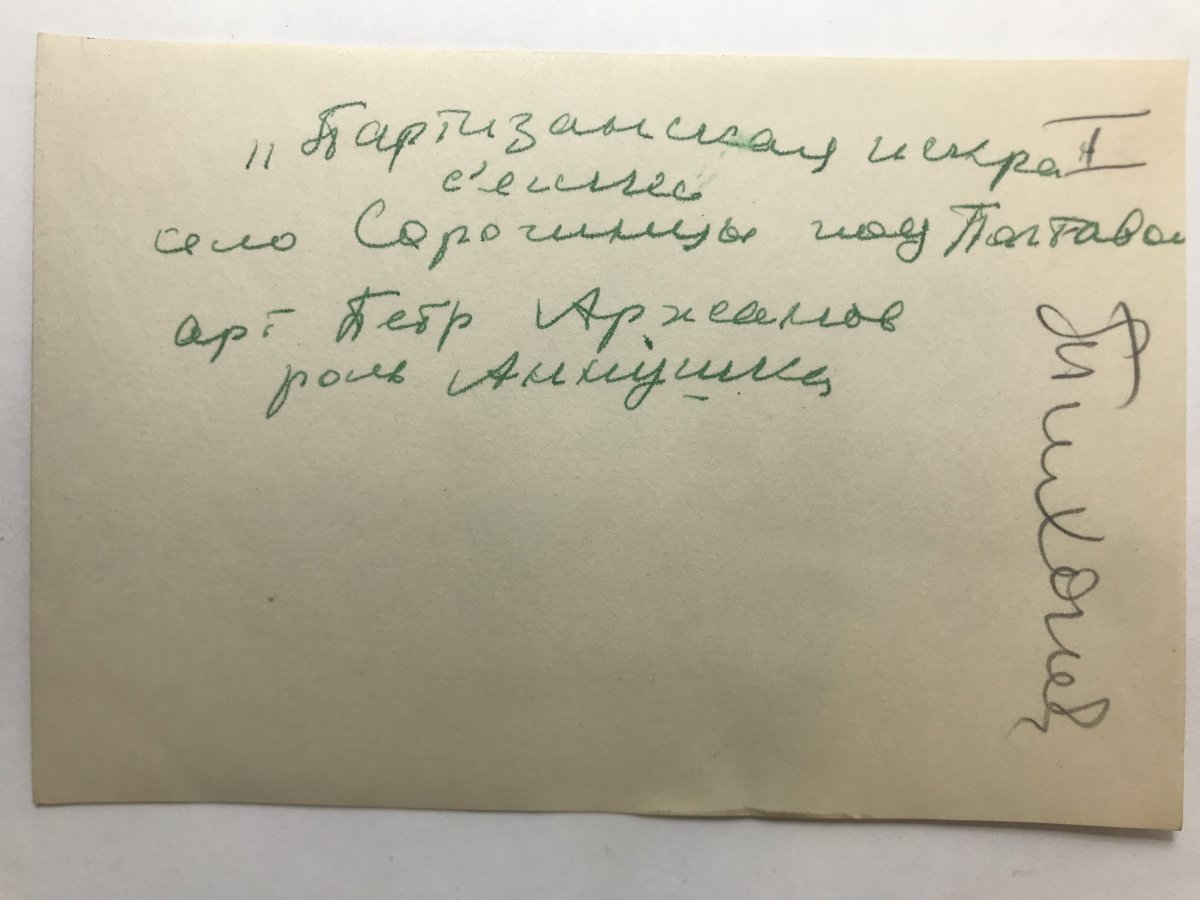 „Партизанская искра I
с'емки
село Сорочинцы под Полтавой
арт Петр Аржанов
роль Аннушка
Тихонов